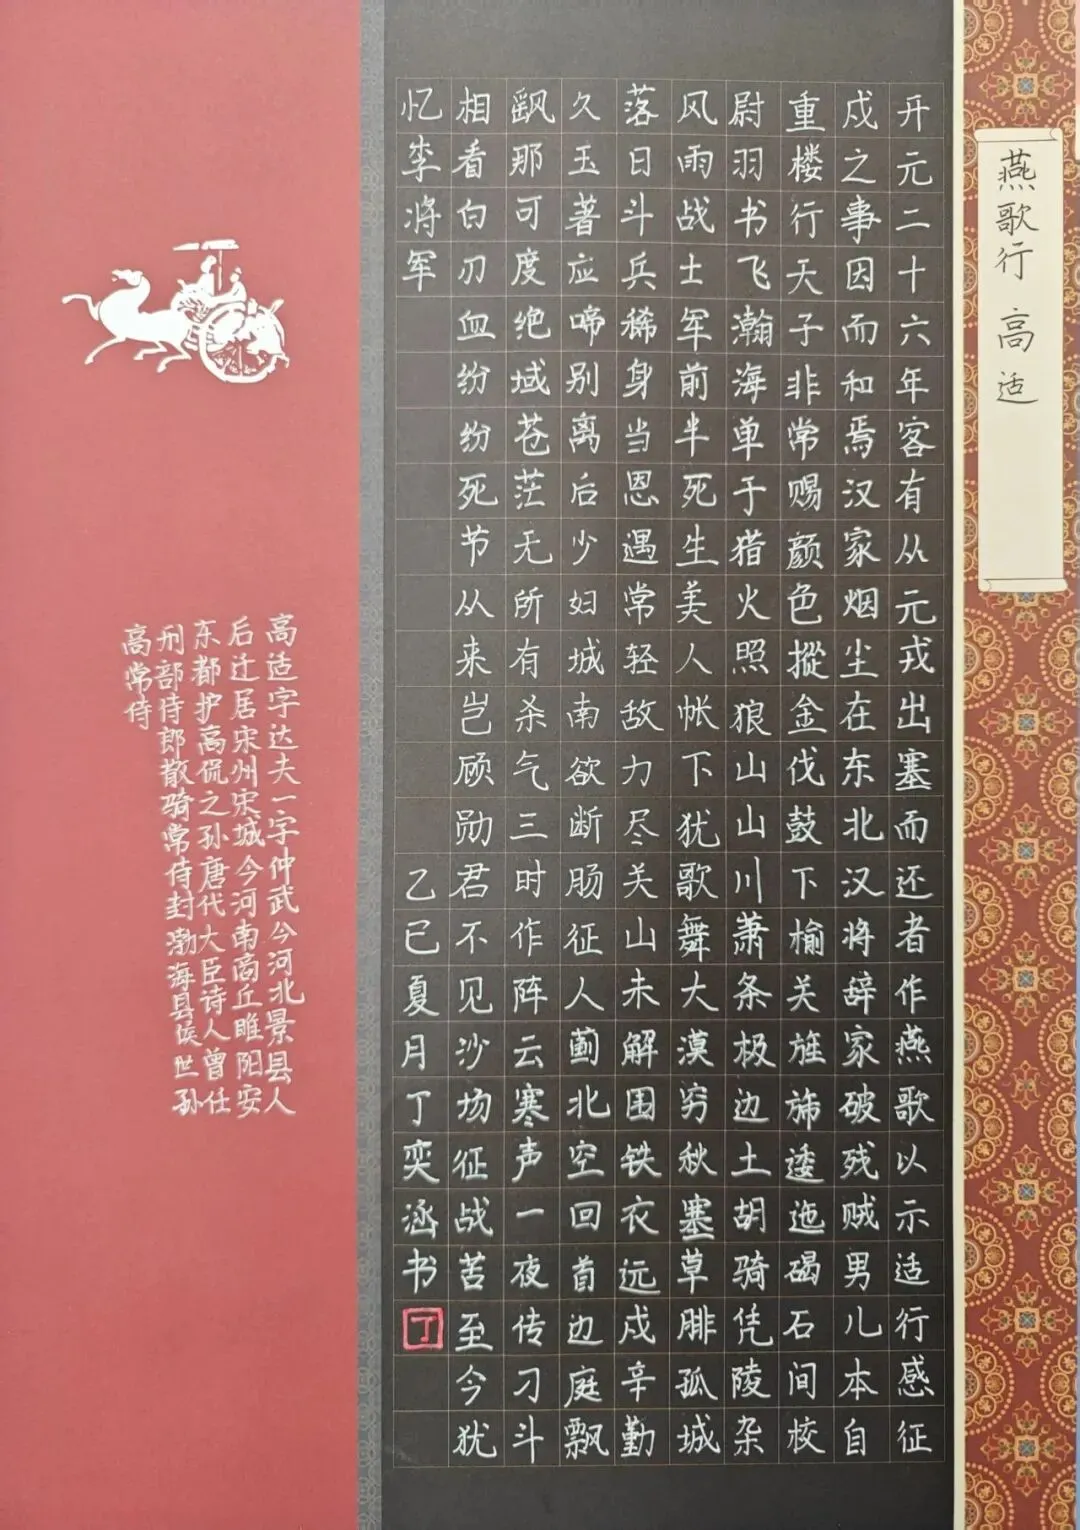 燕歌行 高适
开元二十六年客有从元戎出塞而还者作燕歌以示适行感征
戍之事因而和焉汉家烟尘在东北汉将辞家破残贼男儿本自
重楼行天子非常赐颜色摐金伐鼓下榆关旌旆逶迤碣石间校
尉羽书飞瀚海单于猎火照狼山山川萧条极边土胡骑凭陵杂
风雨战士军前半死生美人帐下犹歌舞大漠穷秋塞草腓孤城
落日斗兵稀身当恩遇常轻敌力尽关山未解围铁衣远戍辛勤
久玉著应啼别离后少妇城南欲断肠征人蓟北空回首边庭飘
飖那可度绝域苍茫无所有杀气三时作阵云寒声一夜传刁斗
相看白刃血纷纷死节从来岂顾勋君不见沙场征战苦至今犹
忆李将军 乙巳夏月丁奕涵书 丁
高适字达夫一字仲武今河北景县人
后迁居宋州宋城今河南高丘睢阳安
东都护高侃之孙唐代大臣诗人曾仕
刑部侍郎散骑常侍封渤海县侯世孙
高常侍